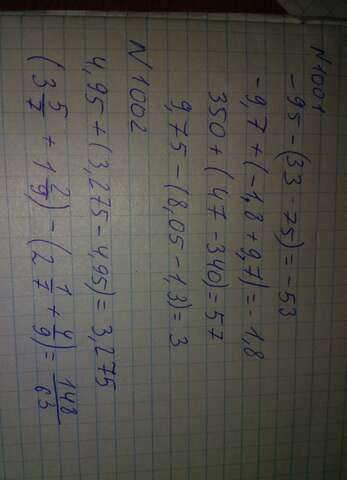 N 1001
-95 - (33 - 75) = -53
-9,7 + (-1,8 + 9,7) = -1,8
350 + (47 - 340) = 57
9,75 - (8,05 - 1,3) = 3
N 1002
4,95 + (3,275 - 4,95) = 3,275
(3 5/7 + 1 2/9) - (2 1/7 + 4/9) = 148/63